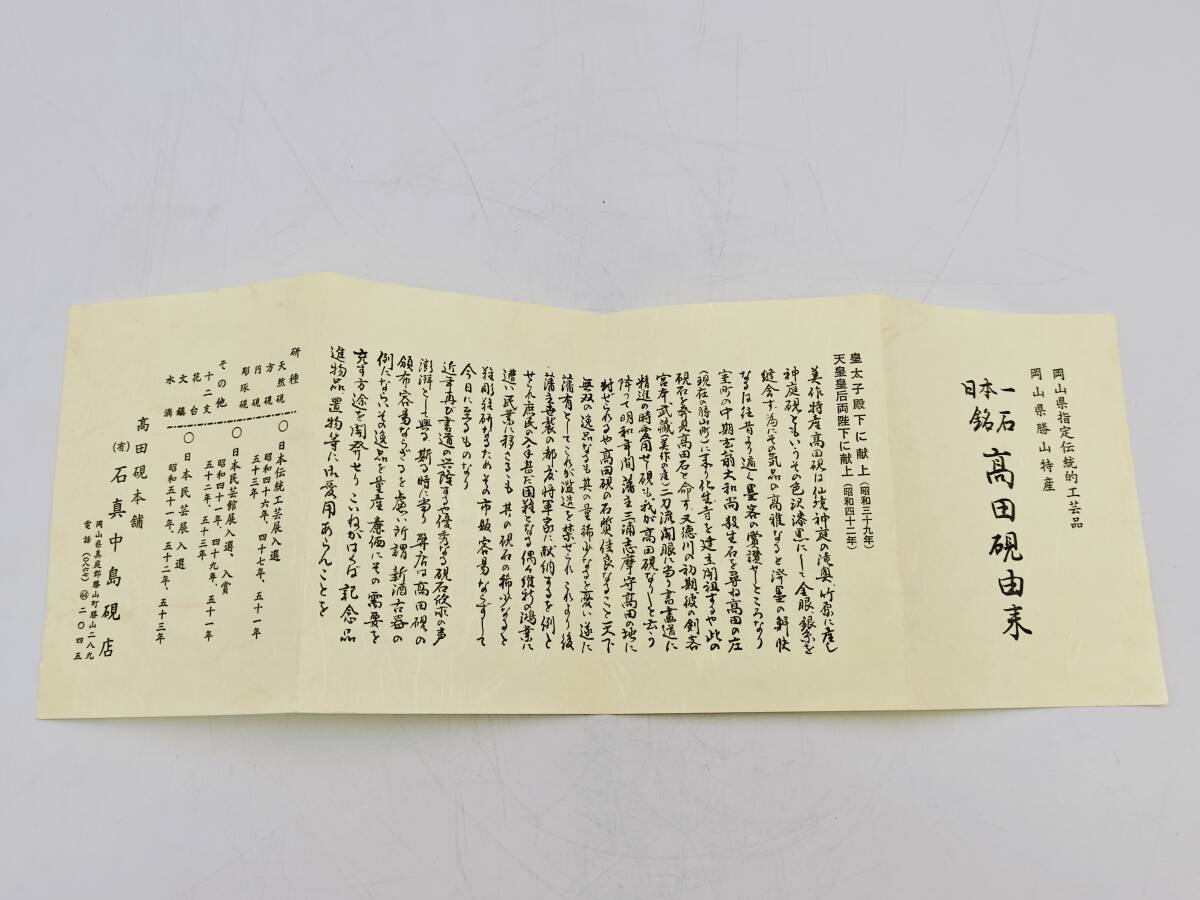 岡山県指定伝統的工芸品
岡山県勝山特産
日本一
銘石
高田硯由来
皇太子殿下に献上(昭和三十九年)
天皇皇后両陛下に献上(昭和四十二年)
美作特産高田硯は仙境神庭の滝奥、竹原に産し
神庭硯ともいうその色沢漆黒にして金眼銀糸を
縫含す、為にその気品の高雅なると溌墨の軽快
なるは往昔より遍く墨客の賞讃せしところなり
室町の中期玄翁大和尚殺生石を尋ね高田の庄
(現在の勝山町)に来り化生寺を建立開祖するや此の
硯石を発見高田石と命す、又徳川の初期彼の剣客
宮本武蔵(美作の産)二刀流開眼に当り書画道に
精進の時愛用せし硯も、我が高田硯なりしと云う
降って明和年間藩主三浦志摩守高田の地に
封ぜらるるや高田硯の石質佳良なること天下
無双の逸品なるも其の量稀少なるを憂い遂に
藩有としてこれが濫造を禁ぜられこれより後
藩主善製の都度将軍家に献納するを例と
せられ庶民の入手甚だ困難となる偶々維新の鴻業に
遭い民業に移さるるも其の硯石の稀少なると
難彫難研なるためその市販容易ならずして
今日に至るものなり
近年再び書道の興隆するや優秀なる硯石攸求の声
澎湃として興る、斯る時に当り弊店は高田硯の
頒布容易ならざるを慮い所謂、新酒古器の
例にならいその逸品を量産廉価にその需要を
充す方途を開発せりこいねがはくば記念品
進物品置物等に御愛用あらんことを
研種
天然硯
方硯
円硯
彫琢硯
その他
十二支
花台
文鎮
水滴
○日本伝統工芸展入選
昭和四十六年、四十七年、五十一年
五十三年
○日本民芸館展入選、入賞
昭和四十一年、四十九年、五十一年
五十二年、五十三年
○日本民芸展入選
昭和五十一年、五十二年、五十三年
高田硯本舗
(有)石真中島硯店
岡山県真庭郡勝山町勝山二八九
電話(〇八六七)㊹二〇四五